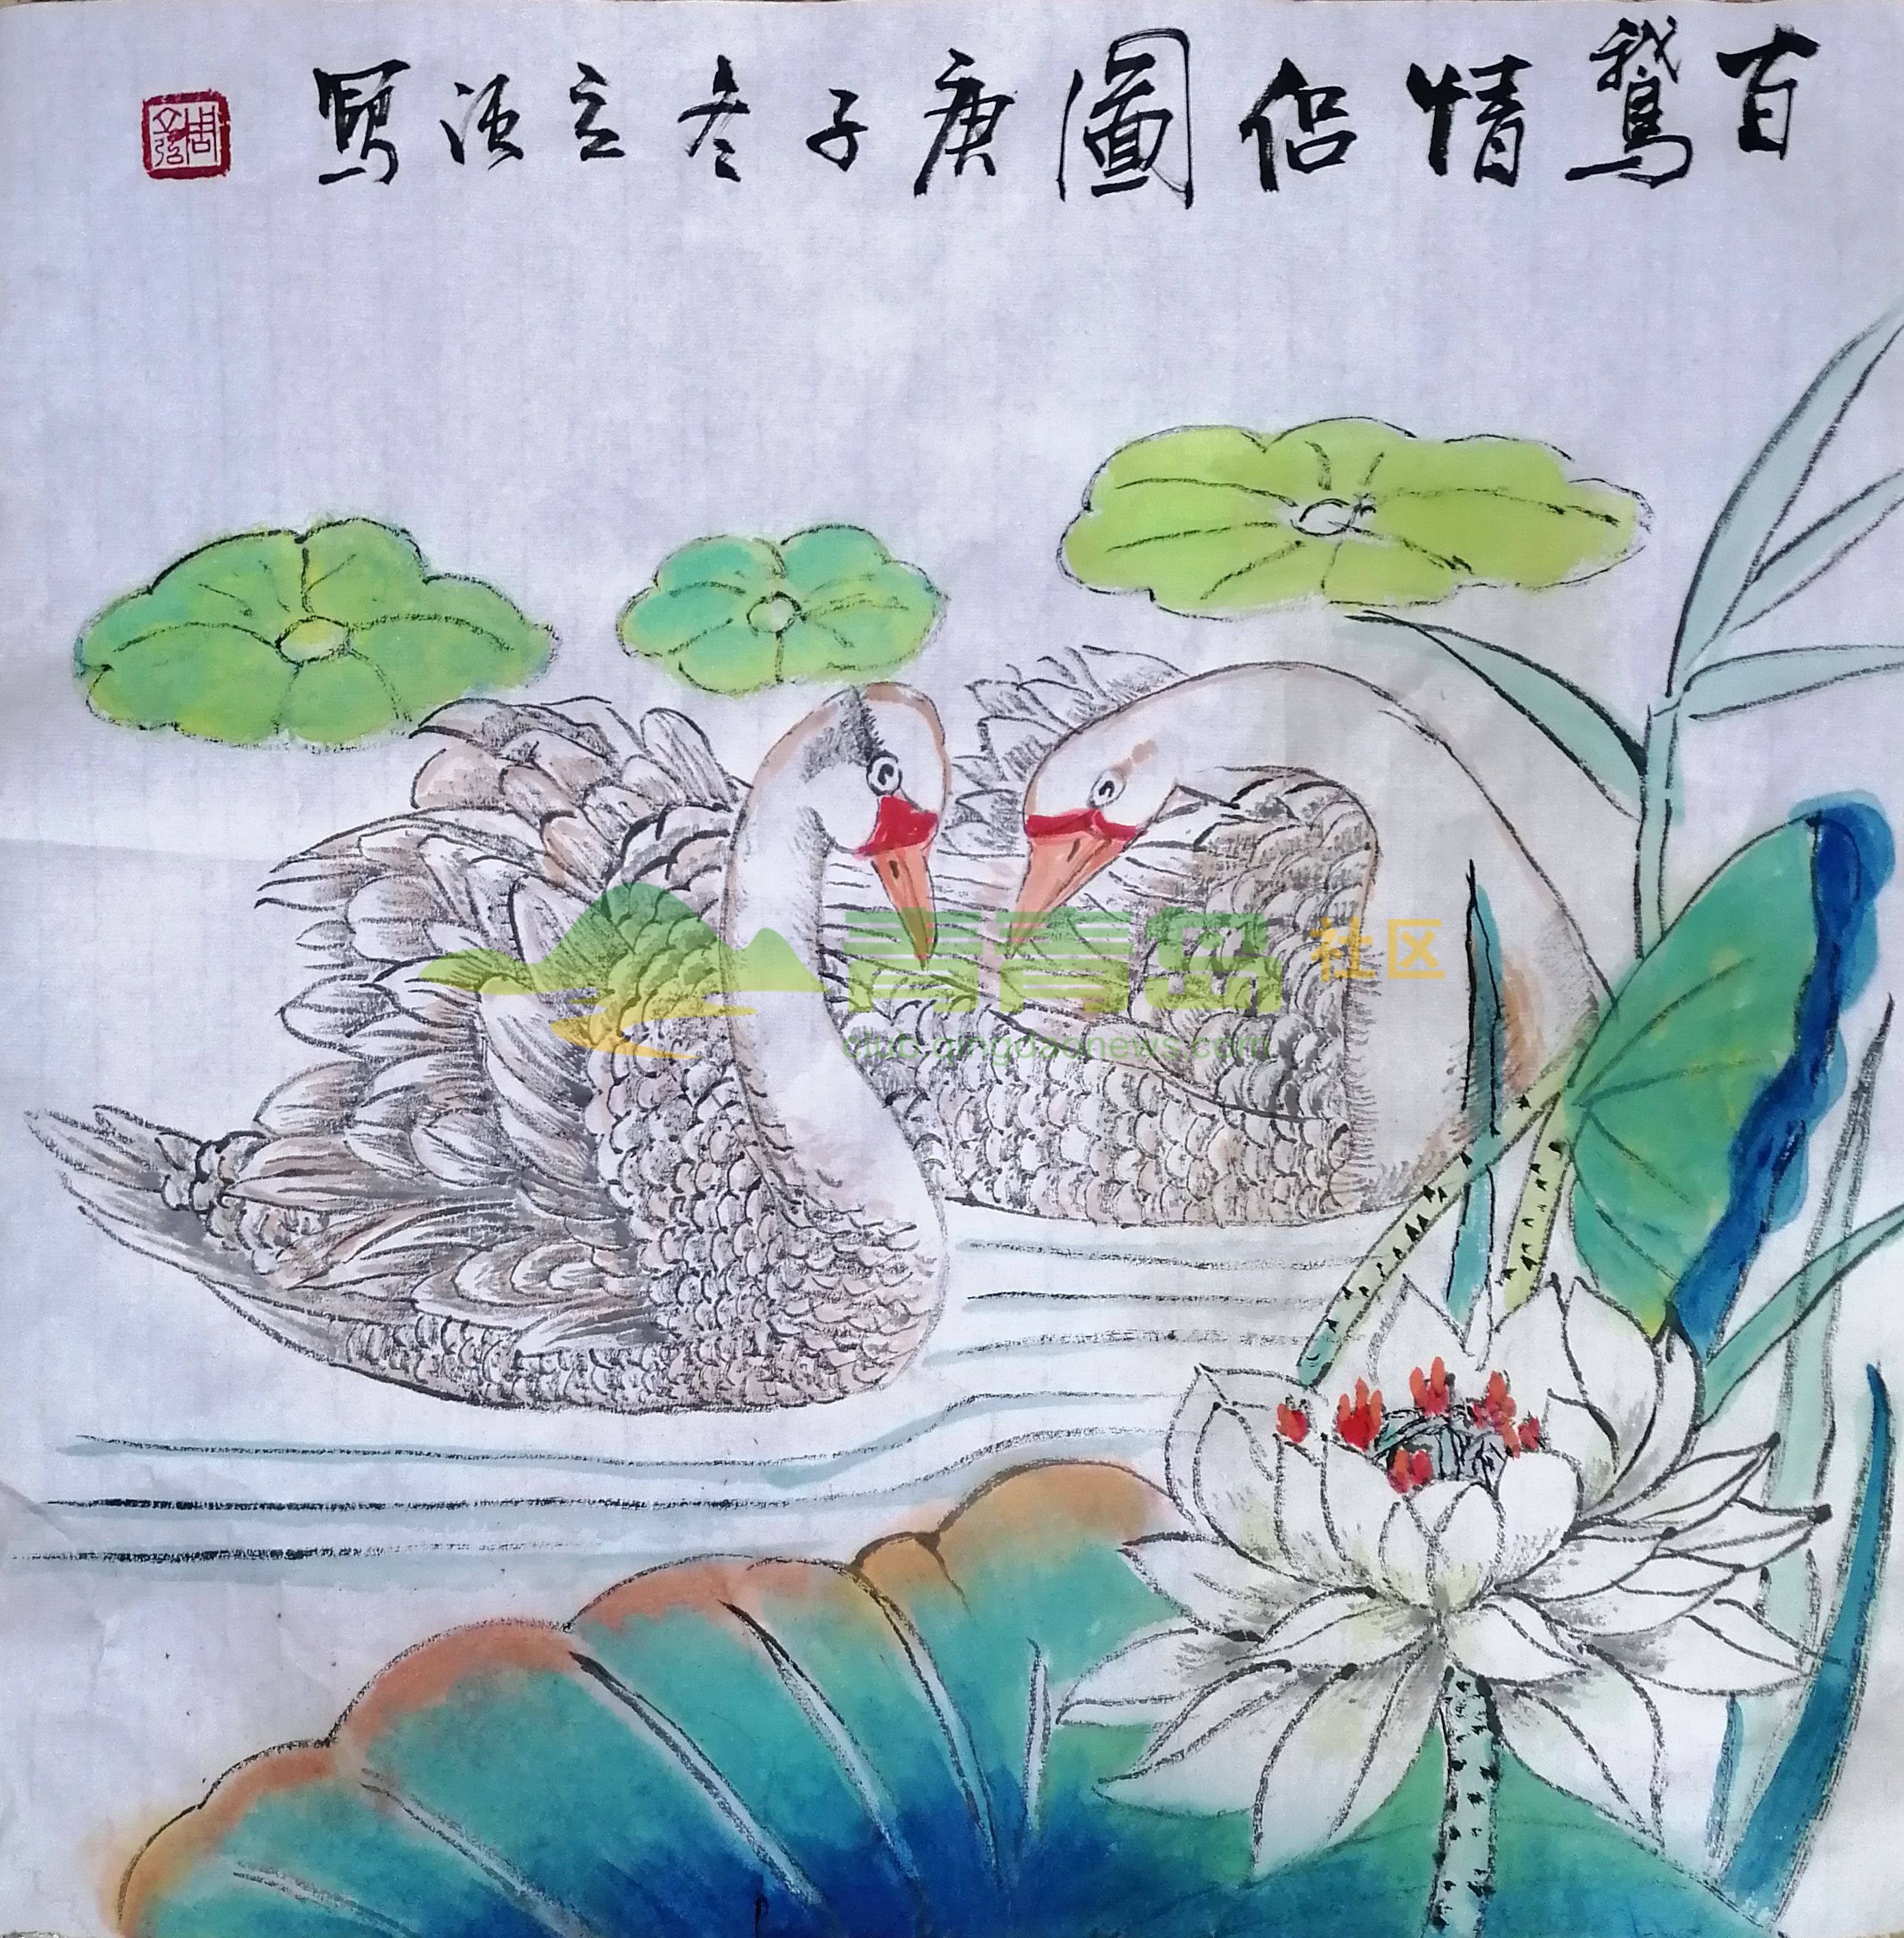 百䳘情侣圖庚子冬立强寫
青青岛社区
club.qingdaonews.com